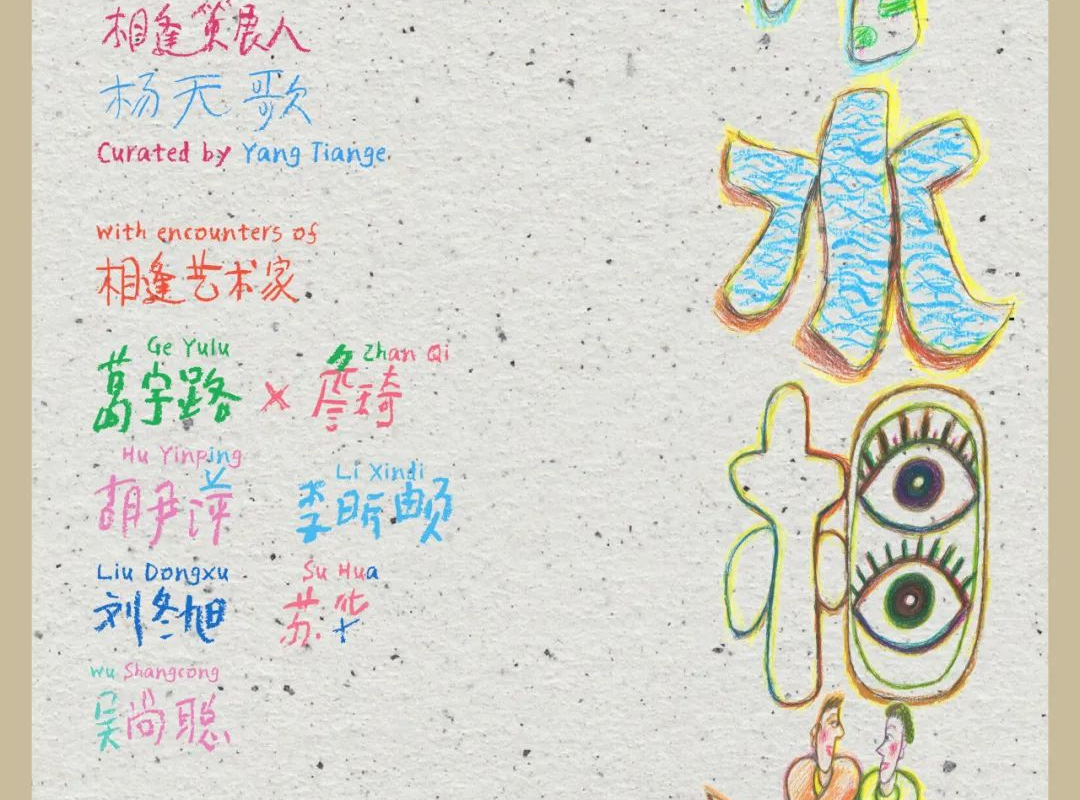 相逢策展人
杨天歌
Curated by Yang Tiange
with encounters of
相逢艺术家
Ge Yulu Zhan Qi
葛宇路 × 琦
Hu Yinping Li Xindi
胡尹萍 李昕頔
Liu Dongxu Su Hua
刘冬旭 苏华
Wu Shangcong
吴尚聪
水
相